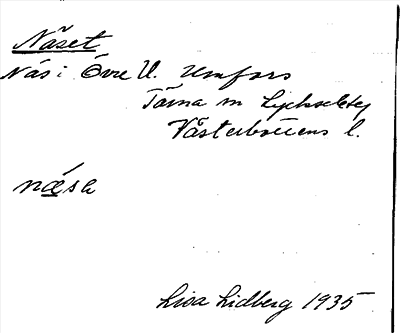 Näset
Näs i Övre U. Umfors
Tärna m Lycksele ty
Västerbottens l.
næ̀sɩ
Lisa Lidberg 1935